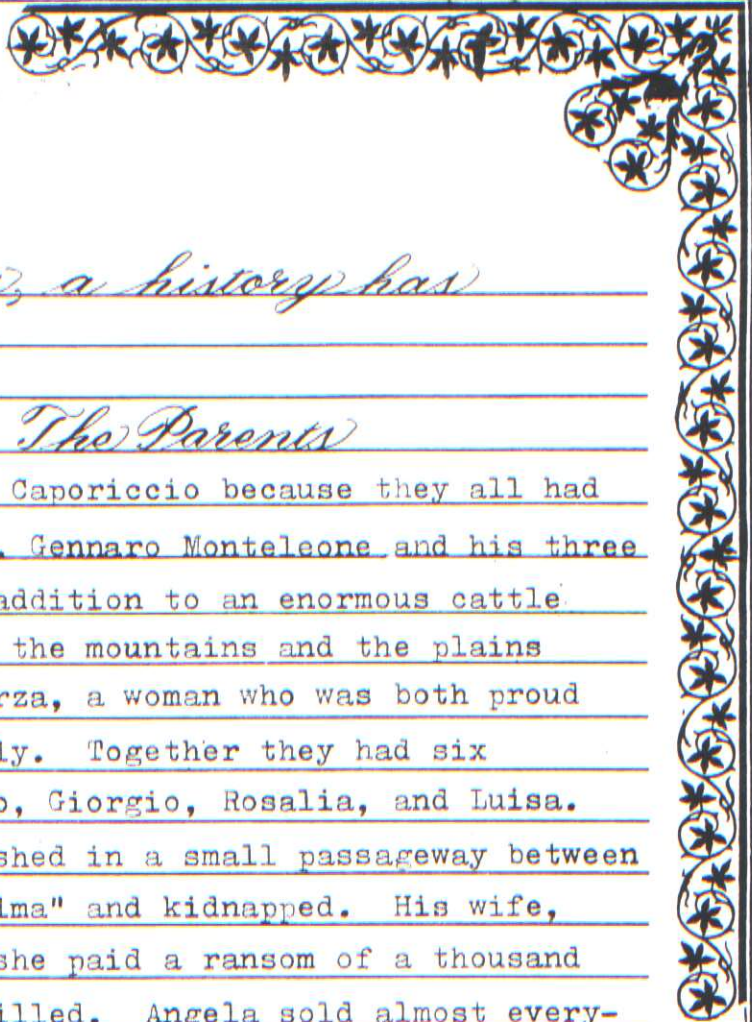 a history has
The Parents
Caporiccio because they all had
Gennaro Monteleone and his three
addition to an enormous cattle
the mountains and the plains
rza, a woman who was both proud
ly. Together they had six
o, Giorgio, Rosalia, and Luisa.
shed in a small passageway between
lma" and kidnapped. His wife,
she paid a ransom of a thousand
illed. Angela sold almost every-